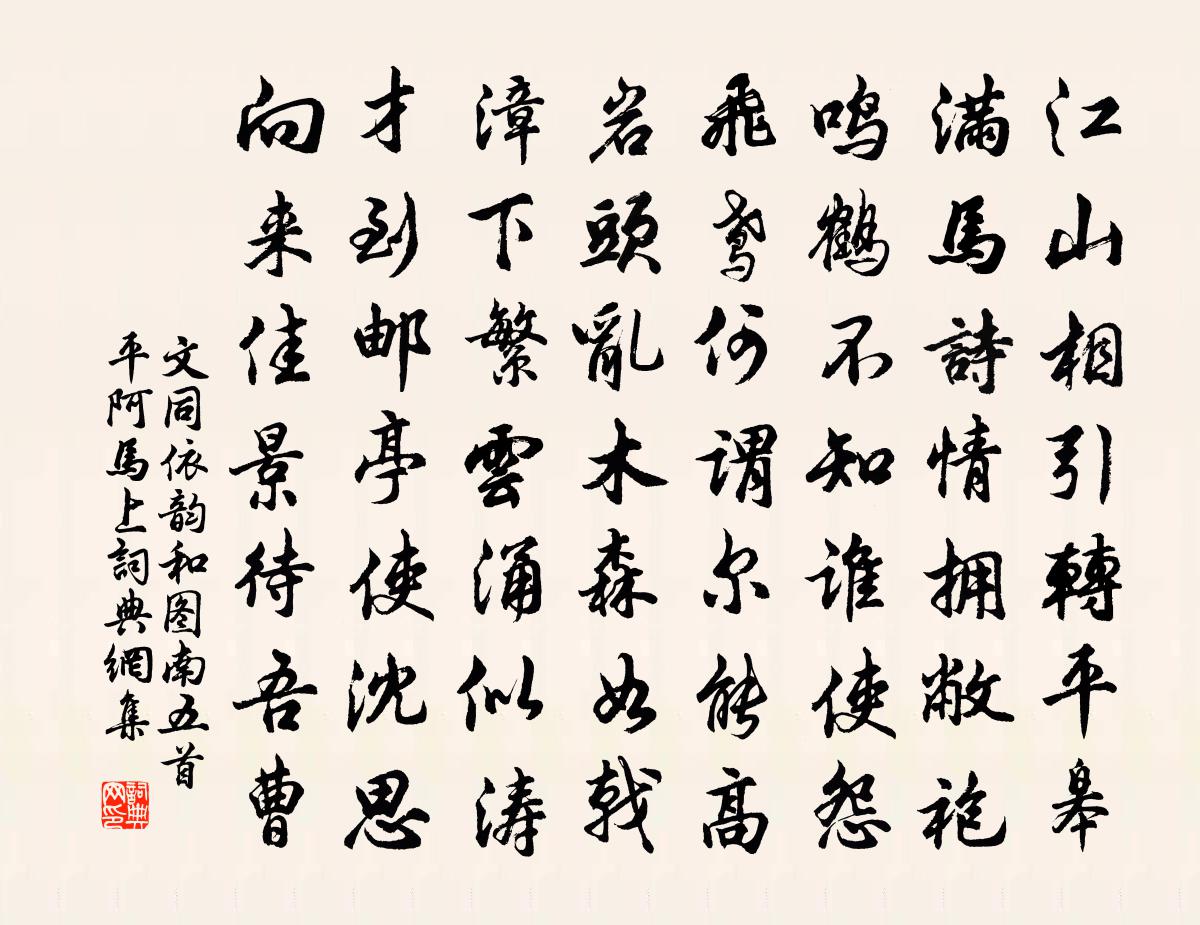 江山相引轉平皋
满馬詩情拥敝袍
鸣鶴不知谁使怨
飛鸢何谓尔能高
岩頭亂木森如戟
漳下繁雲涌似涛
才到邮亭使沈思
向来佳景待吾曹
文同依韵和图南五首
平阿馬上詞典網集
詞典网印